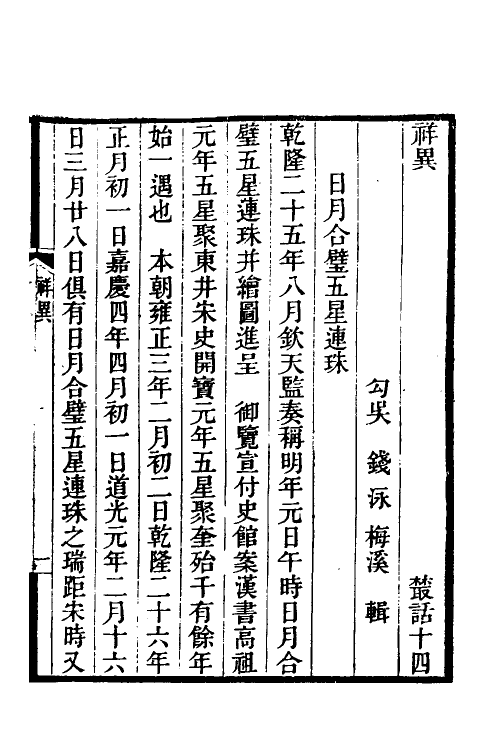 祥異　叢話十四
勾吳　錢泳　梅溪　輯
日月合璧五星連珠
乾隆二十五年八月欽天監奏稱明年元日午時日月合
璧五星連珠并繪圖進呈　御覽宣付史館案漢書高祖
元年五星聚東井宋史開寶元年五星聚奎殆千有餘年
始一遇也　本朝雍正三年二月初二日乾隆二十六年
正月初一日嘉慶四年四月初一日道光元年二月十六
日三月廿八日俱有日月合璧五星連珠之瑞距宋時又
祥異　一